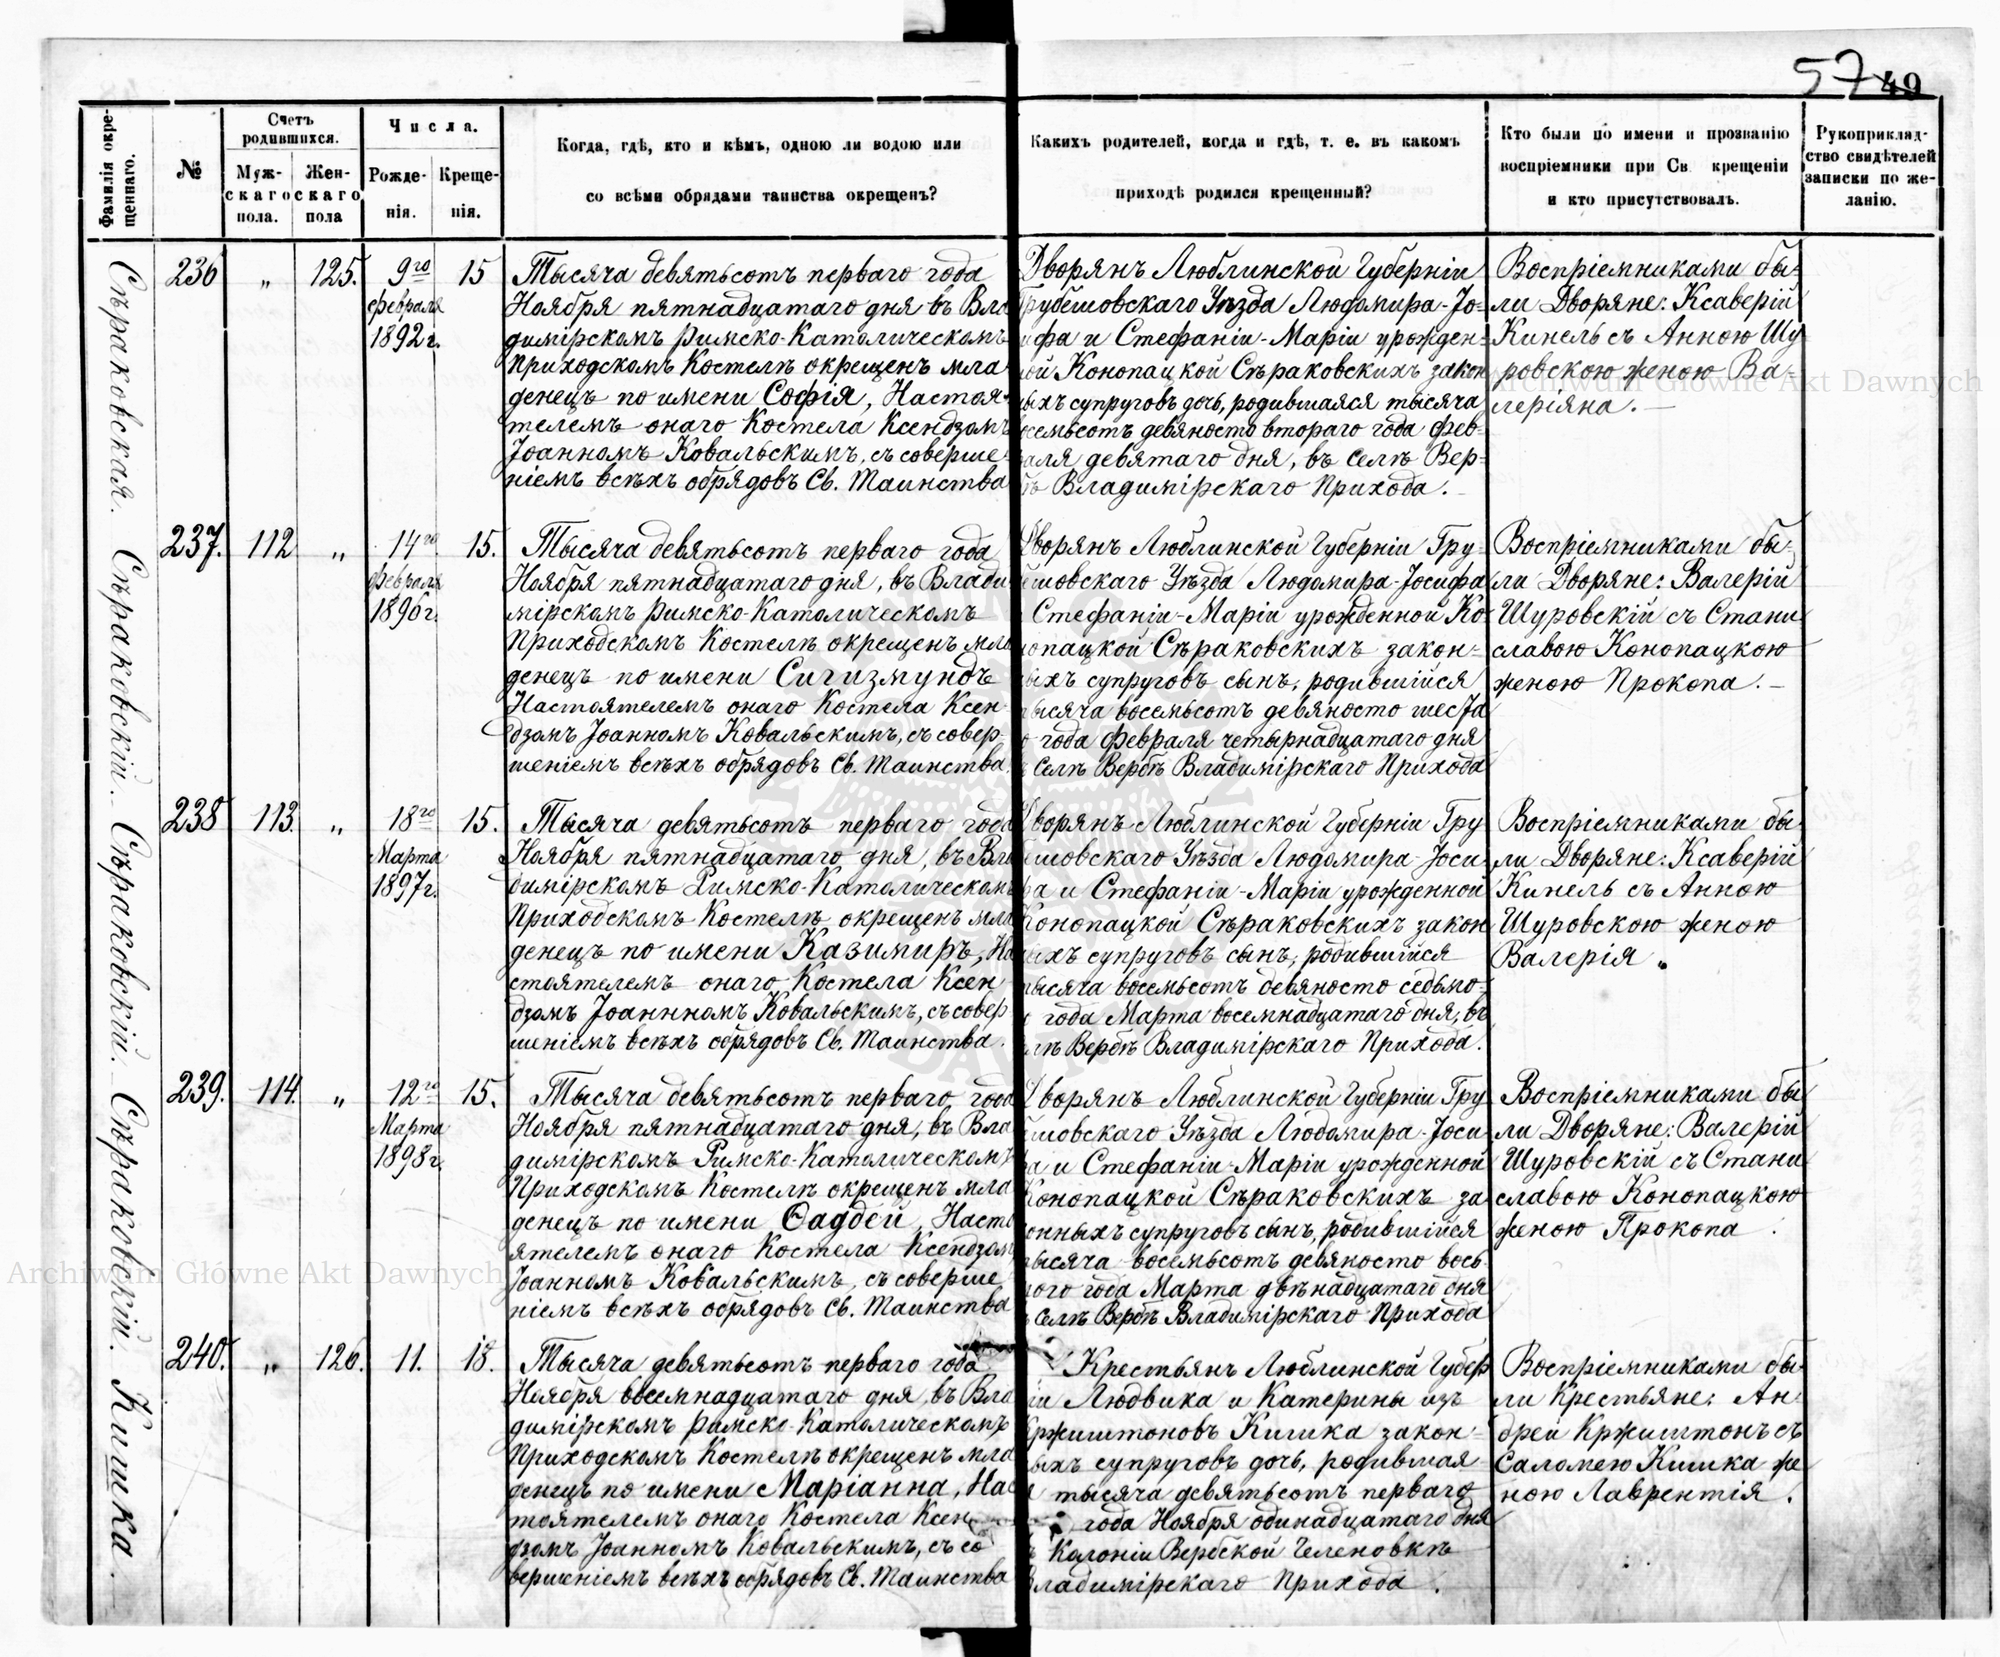 57 49
Фамилія окре-
щеннаго.
№
Счетъ
родившихся.
Муж-
скаго
пола.
Жен-
скаго
пола
Числа.
Рожде-
нія.
Креще-
нія.
Когда, гдѣ, кто и кѣмъ, одною ли водою или
со всѣми обрядами таинства окрещенъ?
Какихъ родителей, когда и гдѣ, т. е. въ какомъ
приходѣ родился крещенный?
Кто были по имени и прозванію
воспріемники при Св. крещеніи
и кто присутствовалъ.
Рукоприклад-
ство свидѣтелей
записки по же-
ланію.
Сѣраковская.
236 " 125. 9го февраля 1892 г. 15
Тысяча девятьсотъ перваго года
Ноября пятнадцатаго дня въ Вла
димірскомъ Римско-Католическомъ
Приходскомъ Костелѣ окрещенъ мла-
денецъ по имени Софія, Настоя-
телемъ онаго Костела Ксендзомъ
Іоанномъ Ковальскимъ, съ соверше-
ніемъ всѣхъ обрядовъ Св. Таинства
Дворянъ Люблинской Губерніи
Грубешовскаго Уѣзда Людомира-Іо-
ифа и Стефаніи-Маріи урожден-
ой Конопацкой Сѣраковскихъ закон
ыхъ супруговъ дочь, родившаяся тысяча
осемьсотъ девяносто втораго года фев-
аля девятаго дня, въ Селѣ Вер-
бѣ Владимірскаго Прихода.
Воспріемниками бы-
ли Дворяне: Ксаверій
Кинель съ Анною Шу-
ровскою женою Ва-
леріяна.
Сѣраковскій.
237. 112 " 14го февраля 1896 г. 15.
Тысяча девятьсотъ перваго года
Ноября пятнадцатаго дня, въ Влади-
мірскомъ Римско-Католическомъ
Приходскомъ Костелѣ окрещенъ мла
денецъ по имени Сигизмундъ
Настоятелемъ онаго Костела Ксен-
дзомъ Іоанномъ Ковальскимъ, съ совер-
шеніемъ всѣхъ обрядовъ Св. Таинства.
Дворянъ Люблинской Губерніи Гру-
бешовскаго Уѣзда Людомира-Іосифа
Стефаніи-Маріи урожденной Ко-
нопацкой Сѣраковскихъ закон-
ныхъ супруговъ сынъ, родившійся
тысяча восемьсотъ девяносто шеста
го года февраля четырнадцатаго дня
Селѣ Вербѣ Владимірскаго Прихода
Воспріемниками бы-
ли Дворяне: Валерій
Шуровскій съ Стани-
славою Конопацкою
женою Прокопа.
Сѣраковскій.
238 113. " 18го Марта 1897 г. 15.
Тысяча девятьсотъ перваго года
Ноября пятнадцатаго дня, въ Вла
димірскомъ Римско-Католическомъ
Приходскомъ Костелѣ окрещенъ мла
денецъ по имени Казимиръ, На
стоятелемъ онаго Костела Ксен
дзомъ Іоаннномъ Ковальскимъ, съ совер-
шеніемъ всѣхъ обрядовъ Св. Таинства.
Дворянъ Люблинской Губерніи Гру
бешовскаго Уѣзда Людомира-Іоси
фа и Стефаніи-Маріи урожденной
Конопацкой Сѣраковскихъ закон
ныхъ супруговъ сынъ, родившійся
тысяча восемьсотъ девяносто седьмо-
го года Марта восемнадцатаго дня, въ
Селѣ Вербѣ Владимірскаго Прихода.
Воспріемниками бы-
ли Дворяне: Ксаверій
Кинель съ Анною
Шуровскою женою
Валерія.
Сѣраковскій.
239. 114. " 12го Марта 1898 г. 15.
Тысяча девятьсотъ перваго года
Ноября пятнадцатаго дня, въ Вла
димірскомъ Римско-Католическомъ
Приходскомъ Костелѣ окрещенъ мла
денецъ по имени Ѳаддей, Насто
ятелемъ онаго Костела Ксендзом
Іоанномъ Ковальскимъ, съ соверше
ніемъ всѣхъ обрядовъ Св. Таинства
Дворянъ Люблинской Губерніи Гру
бешовскаго Уѣзда Людомира-Іоси
фа и Стефаніи-Маріи урожденной
Конопацкой Сѣраковскихъ за-
конныхъ супруговъ сынъ, родившійся
тысяча восемьсотъ девяносто вось
мого года Марта двѣнадцатаго дня
Селѣ Вербѣ Владимірскаго Прихода
Воспріемниками бы
ли Дворяне: Валерій
Шуровскій съ Стани
славою Конопацкою
женою Прокопа
Кишка.
240. " 126. 11. 18.
Тысяча девятьсотъ перваго года
Ноября восемнадцатаго дня, въ Вла
димірскомъ Римско-Католическомъ
Приходскомъ Костелѣ окрещенъ мла
денецъ по имени Маріанна, Нас
тоятелемъ онаго Костела Ксен
дзомъ Іоанномъ Ковальскимъ, съ со
вершеніемъ всѣхъ обрядовъ Св. Таинства
Крестьянъ Люблинской Губер
ніи Людвика и Катерины изъ
Кржиштоновъ Кишка закон-
ныхъ супруговъ дочь, родившая
тысяча девятьсотъ перваго
года Ноября одинадцатаго дня
Колоніи Вербской Челеновкѣ
Владимірскаго Прихода.
Воспріемниками бы-
ли Крестьяне: Ан-
дрей Кржиштонъ съ
Саломею Кишка же
ною Лаврентія.
Archiwum Główne Akt Dawnych
Archiwum Główne Akt Dawnych